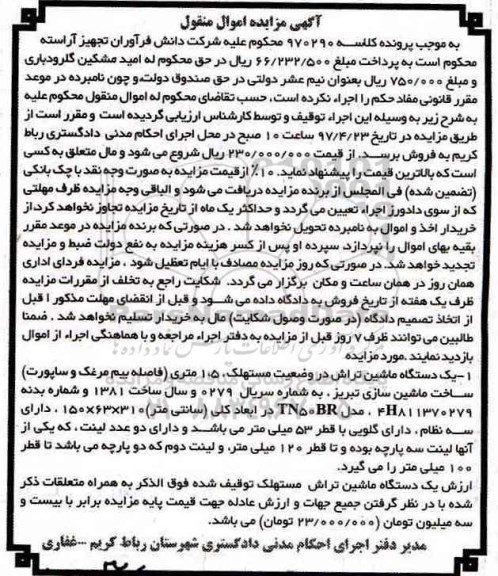 آگهی مزایده اموال منقول
به موجب پرونده کلاسه ۹۷۰۲۹۰ محکوم علیه شرکت دانش فرآوران تجهیز آراسته
محکوم است به پرداخت مبلغ ۶۶/۲۳۲/۵۰۰ ریال در حق محکوم له امید مشکین گلرودباری
و مبلغ ۷۵۰/۰۰۰ ریال بعنوان نیم عشر دولتی در حق صندوق دولت،و چون نامبرده در موعد
مقرر قانونی مفاد حکم را اجراء نکرده است، حسب تقاضای محکوم له اموال منقول محکوم علیه
به شرح زیر به وسیله این اجراء توقیف و توسط کارشناس ارزیابی گردیده است و مقرر است از
طریق مزایده در تاریخ ۹۷/۴/۲۳ ساعت ۱۰ صبح در محل اجرای احکام مدنی دادگستری رباط
کریم به فروش برسد. از قیمت ۲۳۰/۰۰۰/۰۰۰ ریال شروع می شود و مال متعلق به کسی
است که بالاترین قیمت را پیشنهاد نماید. ۱۰٪ ازقیمت مزایده به صورت وجه نقد یا چک بانکی
(تضمین شده) فی المجلس از برنده مزایده دریافت می شود و الباقی وجه مزایده ظرف مهلتی
که از سوی دادورز اجراء تعیین می گردد و حداکثر یک ماه از تاریخ مزایده تجاوز نخواهد کرد،از
خریدار اخذ و اموال به نامبرده تحویل نخواهد شد . در صورتی که برنده مزایده در موعد مقرر
بقیه بهای اموال را نپردازد، سپرده او پس از کسر هزینه مزایده به نفع دولت ضبط و مزایده
تجدید خواهد شد. در صورتی که روز مزایده مصادف با ایام تعطیل شود ، مزایده فردای اداری
همان روز در همان ساعت و مکان برگزار می گردد. شکایت راجع به تخلف از مقررات مزایده
ظرف یک هفته از تاریخ فروش به دادگاه داده می شود و قبل از انقضای مهلت مذکور ا قبل
از اتخاذ تصمیم دادگاه (در صورت وصول شکایت) مال به خریدار تسلیم نخواهد شد . ضمنا
طالبین می توانند ظرف ۷ روز قبل از مزایده به دفتر اجراء مراجعه و با هماهنگی اجراء از اموال
بازدید نمایند .مورد مزایده
۱- یک دستگاه ماشین تراش در وضعیت مستهلک، ۱،۵ متری (فاصله بیم مرغک و ساپورت)
ساخت ماشین سازی تبریز ، به شماره سریال ۰۲۷۹ و سال ساخت 1381 و شماره بدنه
۴H۸۱۱۳۷۰۲۷۹ ، مدل TN۵۰BR در ابعاد کلی (سانتی متر) ۳۱۰×۶۳×۱۵۰ ، دارای
سه نظام ، دارای گلویی با قطر ۵۳ میلی متر می باشد و دارای دو عدد لینت ، که یکی از
آنها لینت سه پارچه بوده و تا قطر ۱۲۰ میلی متر، و لینت دوم که دو پارچه می باشد تا قطر
۱۰۰ میلی متر را می گیرد.
ارزش یک دستگاه ماشین تراش مستهلک توقیف شده فوق الذکر به همراه متعلقات ذکر
شده با در نظر گرفتن جمیع جهات و ارزش عادله جهت قیمت پایه مزایده برابر با بیست و
سه میلیون تومان (۲۳/۰۰۰/۰۰۰ تومان) می باشد.
مدیر دفتر اجرای احکام مدنی دادگستری شهرستان رباط کریم -- غفاری